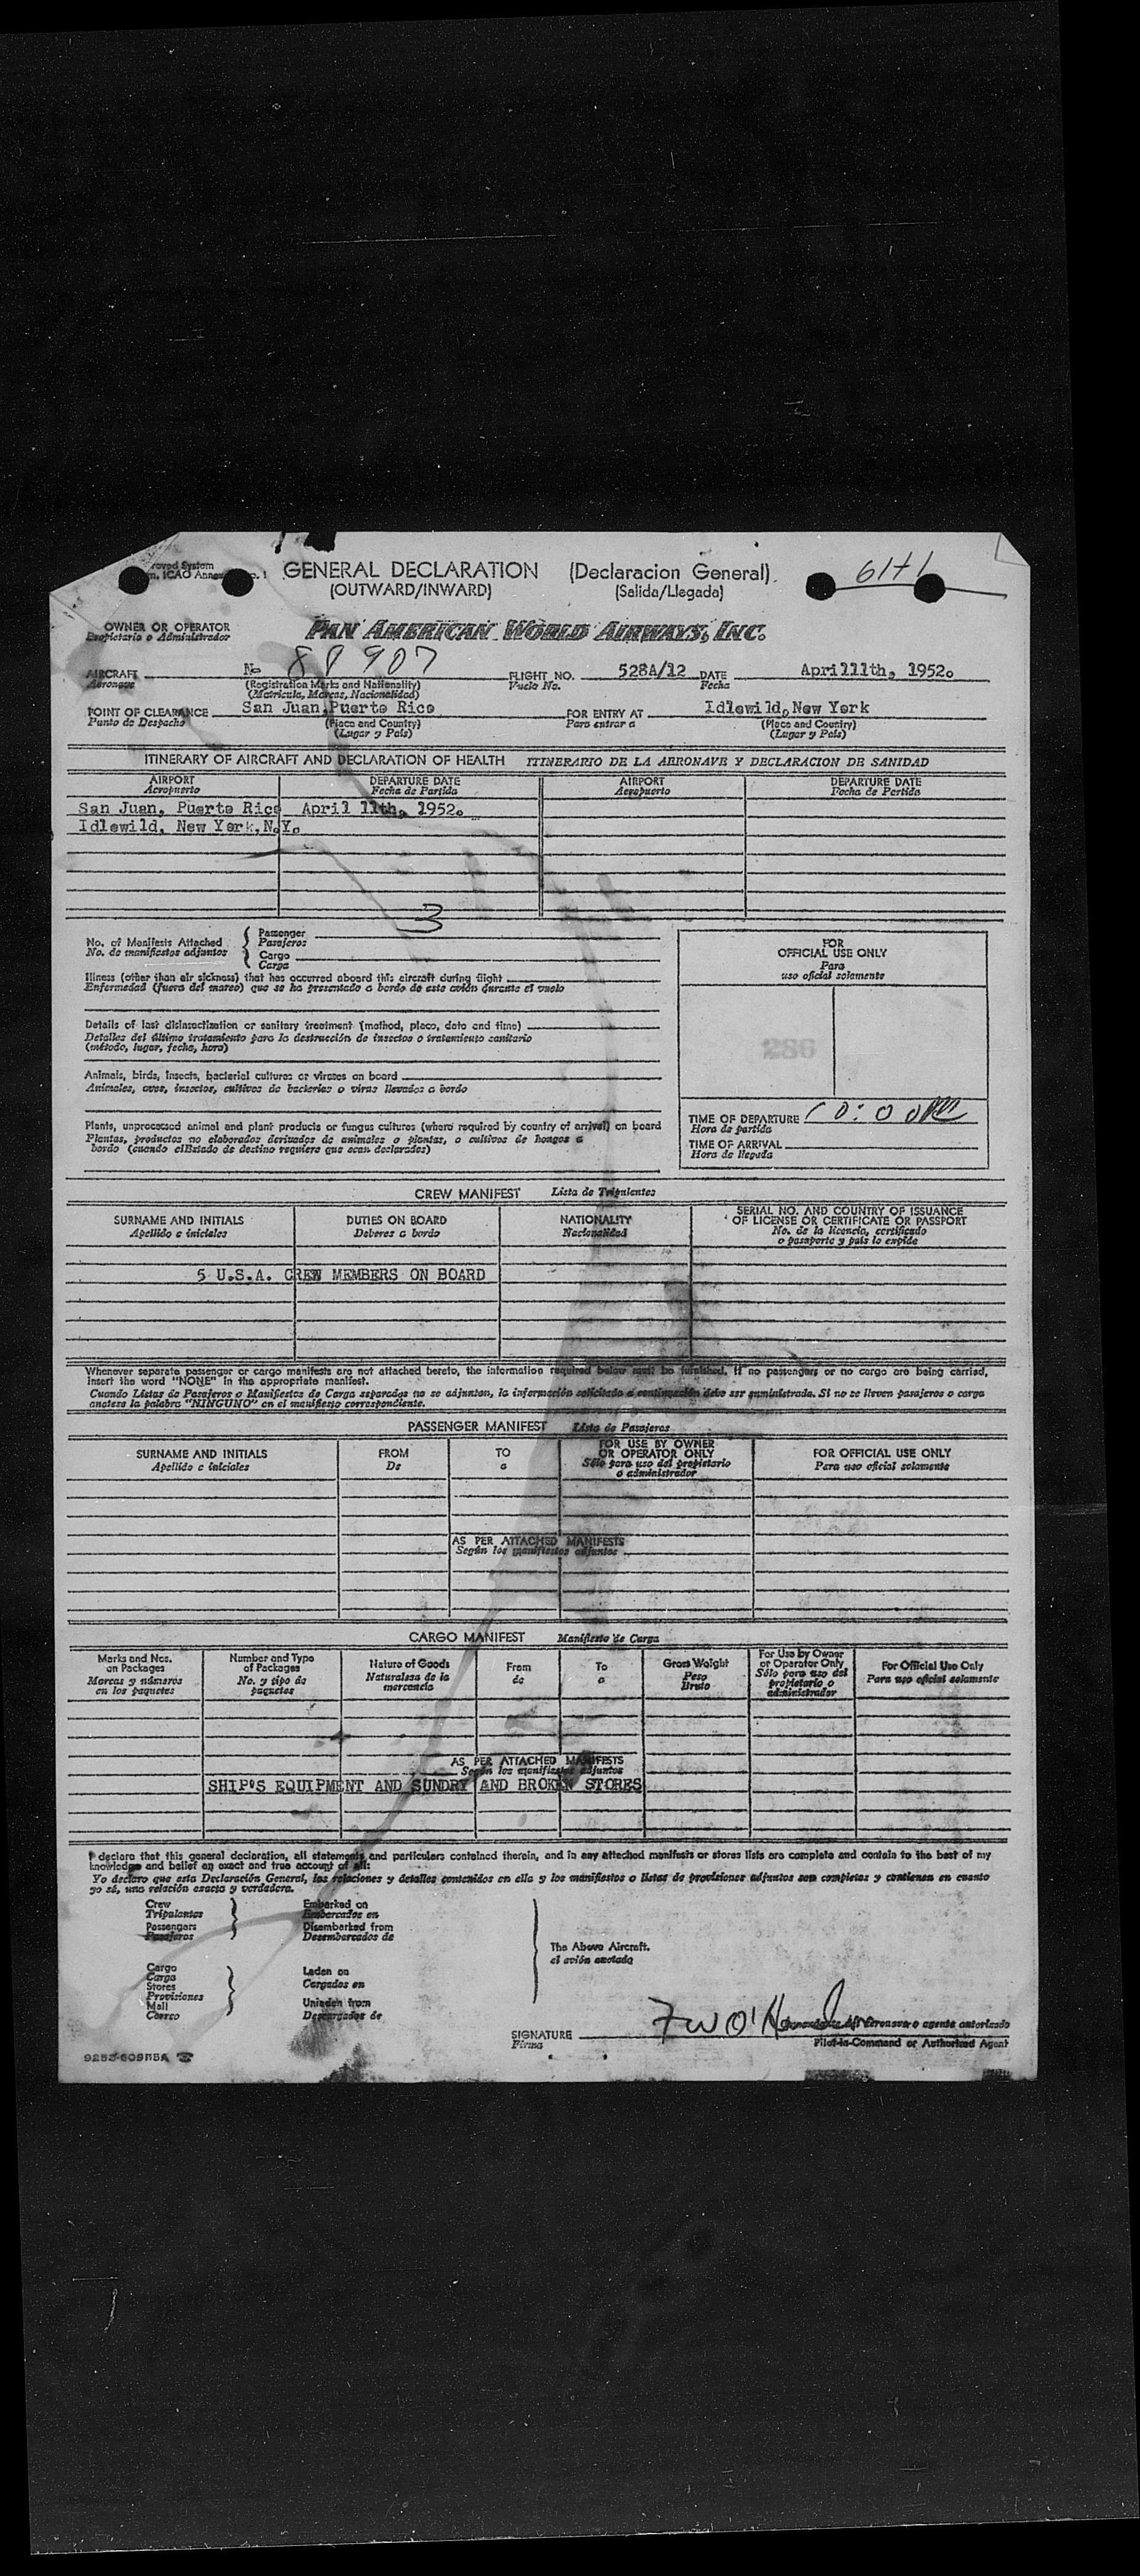 roved System
ICAO Anne
GENERAL DECLARATION (Declaracion General)
(OUTWARD/INWARD) (Salida/Llegada)
61+1
OWNER OR OPERATOR
Propietario o Administrador
PAN AMERICAN WORLD AIRWAYS, INC.
AIRCRAFT N FLIGHT NO. 528A/12 DATE April11th, 1952.
Aeronave (Registration Marks and Nationality) Vuelo No. Fecha
(Matricula, Marcas, Nacionalidad)
POINT OF CLEARANCE San Juan, Puerto Rico FOR ENTRY AT Idlewild, New York
Punto de Despacho (Place and Country) Para entrar a (Place and Country)
(Lugar y País) (Lugar y País)
ITINERARY OF AIRCRAFT AND DECLARATION OF HEALTH ITINERARIO DE LA AERONAVE Y DECLARACION DE SANIDAD
AIRPORT DEPARTURE DATE AIRPORT DEPARTURE DATE
Aeropuerto Fecha de Partida Aeropuerto Fecha de Partida
San Juan, Puerto Rico April 11th, 1952.
Idlewild, New York, N.Y.
No. of Manifests Attached
No. de manifiestos adjuntos
Passenger 3
Pasajeros
Cargo
Carga
Illness (other than air sickness) that has occurred aboard this aircraft during flight
Enfermedad (fuera del mareo) que se ha presentado a bordo de este avión durante el vuelo
Details of last disinsectization or sanitary treatment (method, place, date and time)
Detalles del último tratamiento para la destrucción de insectos o tratamiento sanitario
(método, lugar, fecha, hora)
Animals, birds, insects, bacterial cultures or viruses on board
Animales, aves, insectos, cultivos de bacterias o virus llevados a bordo
Plants, unprocessed animal and plant products or fungus cultures (where required by country of arrival) on board
Plantas, productos no elaborados derivados de animales o plantas, o cultivos de hongos a
bordo (cuando elEstado de destino requiere que sean declarados)
FOR
OFFICIAL USE ONLY
Para
uso oficial solamente
286
TIME OF DEPARTURE 10:00
Hora de partida
TIME OF ARRIVAL
Hora de llegada
CREW MANIFEST Lista de Tripulantes
SURNAME AND INITIALS DUTIES ON BOARD NATIONALITY SERIAL NO. AND COUNTRY OF ISSUANCE
OF LICENSE OR CERTIFICATE OR PASSPORT
Apellido e iniciales Deberes a bordo Nacionalidad No. de la licencia, certificado
o pasaporte y país lo expide
5 U.S.A. CREW MEMBERS ON BOARD
Whenever separate passenger or cargo manifests are not attached hereto, the information required below must be furnished. If no passengers or no cargo are being carried,
insert the word "NONE" in the appropriate manifest.
Cuando Listas de Pasajeros o Manifiestos de Carga separados no se adjunten, la información solicitada a continuación debe ser suministrada. Si no se lleven pasajeros o carga
anotese la palabra "NINGUNO" en el manifiesto correspondiente.
PASSENGER MANIFEST Lista de Pasajeros
SURNAME AND INITIALS FROM TO FOR USE BY OWNER FOR OFFICIAL USE ONLY
OR OPERATOR ONLY
Apellido e iniciales De a Sólo para uso del propietario Para uso oficial solamente
o administrador
AS PER ATTACHED MANIFESTS
Según los manifiestos adjuntos
CARGO MANIFEST Manifiesto de Carga
Marks and Nos. Number and Type Nature of Goods From To Gross Weight For Use by Owner For Official Use Only
on Packages of Packages Naturaleza de la de a Peso or Operator Only Para uso oficial solamente
Marcas y números No. y tipo de mercancía Bruto Sólo para uso del
en los paquetes paquetes propietario o
administrador
AS PER ATTACHED MANIFESTS
Según los manifiestos adjuntos
SHIP'S EQUIPMENT AND SUNDRY AND BROKEN STORES
I declare that this general declaration, all statements and particulars contained therein, and in any attached manifests or stores lists are complete and contain to the best of my
knowledge and belief an exact and true account of all:
Yo declaro que esta Declaración General, las relaciones y detalles contenidos en ella y los manifiestos o listas de provisiones adjuntos son completos y contienen en cuanto
yo sé, una relación exacta y verdadera.
Crew Embarked on
Tripulantes Embarcados en
Passengers Disembarked from
Pasajeros Desembarcados de
The Above Aircraft.
el avión anotado
Cargo Laden on
Carga Cargados en
Stores
Provisiones
Mail Unladen from
Correo Descargados de
SIGNATURE
Firma
Comandante del aeronave o agente autorizado
Pilot-in-Command or Authorized Agent